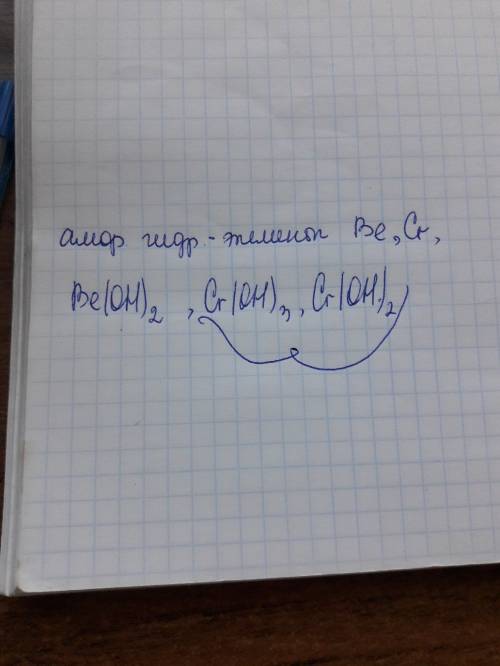 амф гидр - элемент Be, Cr,
Be(OH)₂, Cr(OH)₃, Cr(OH)₂